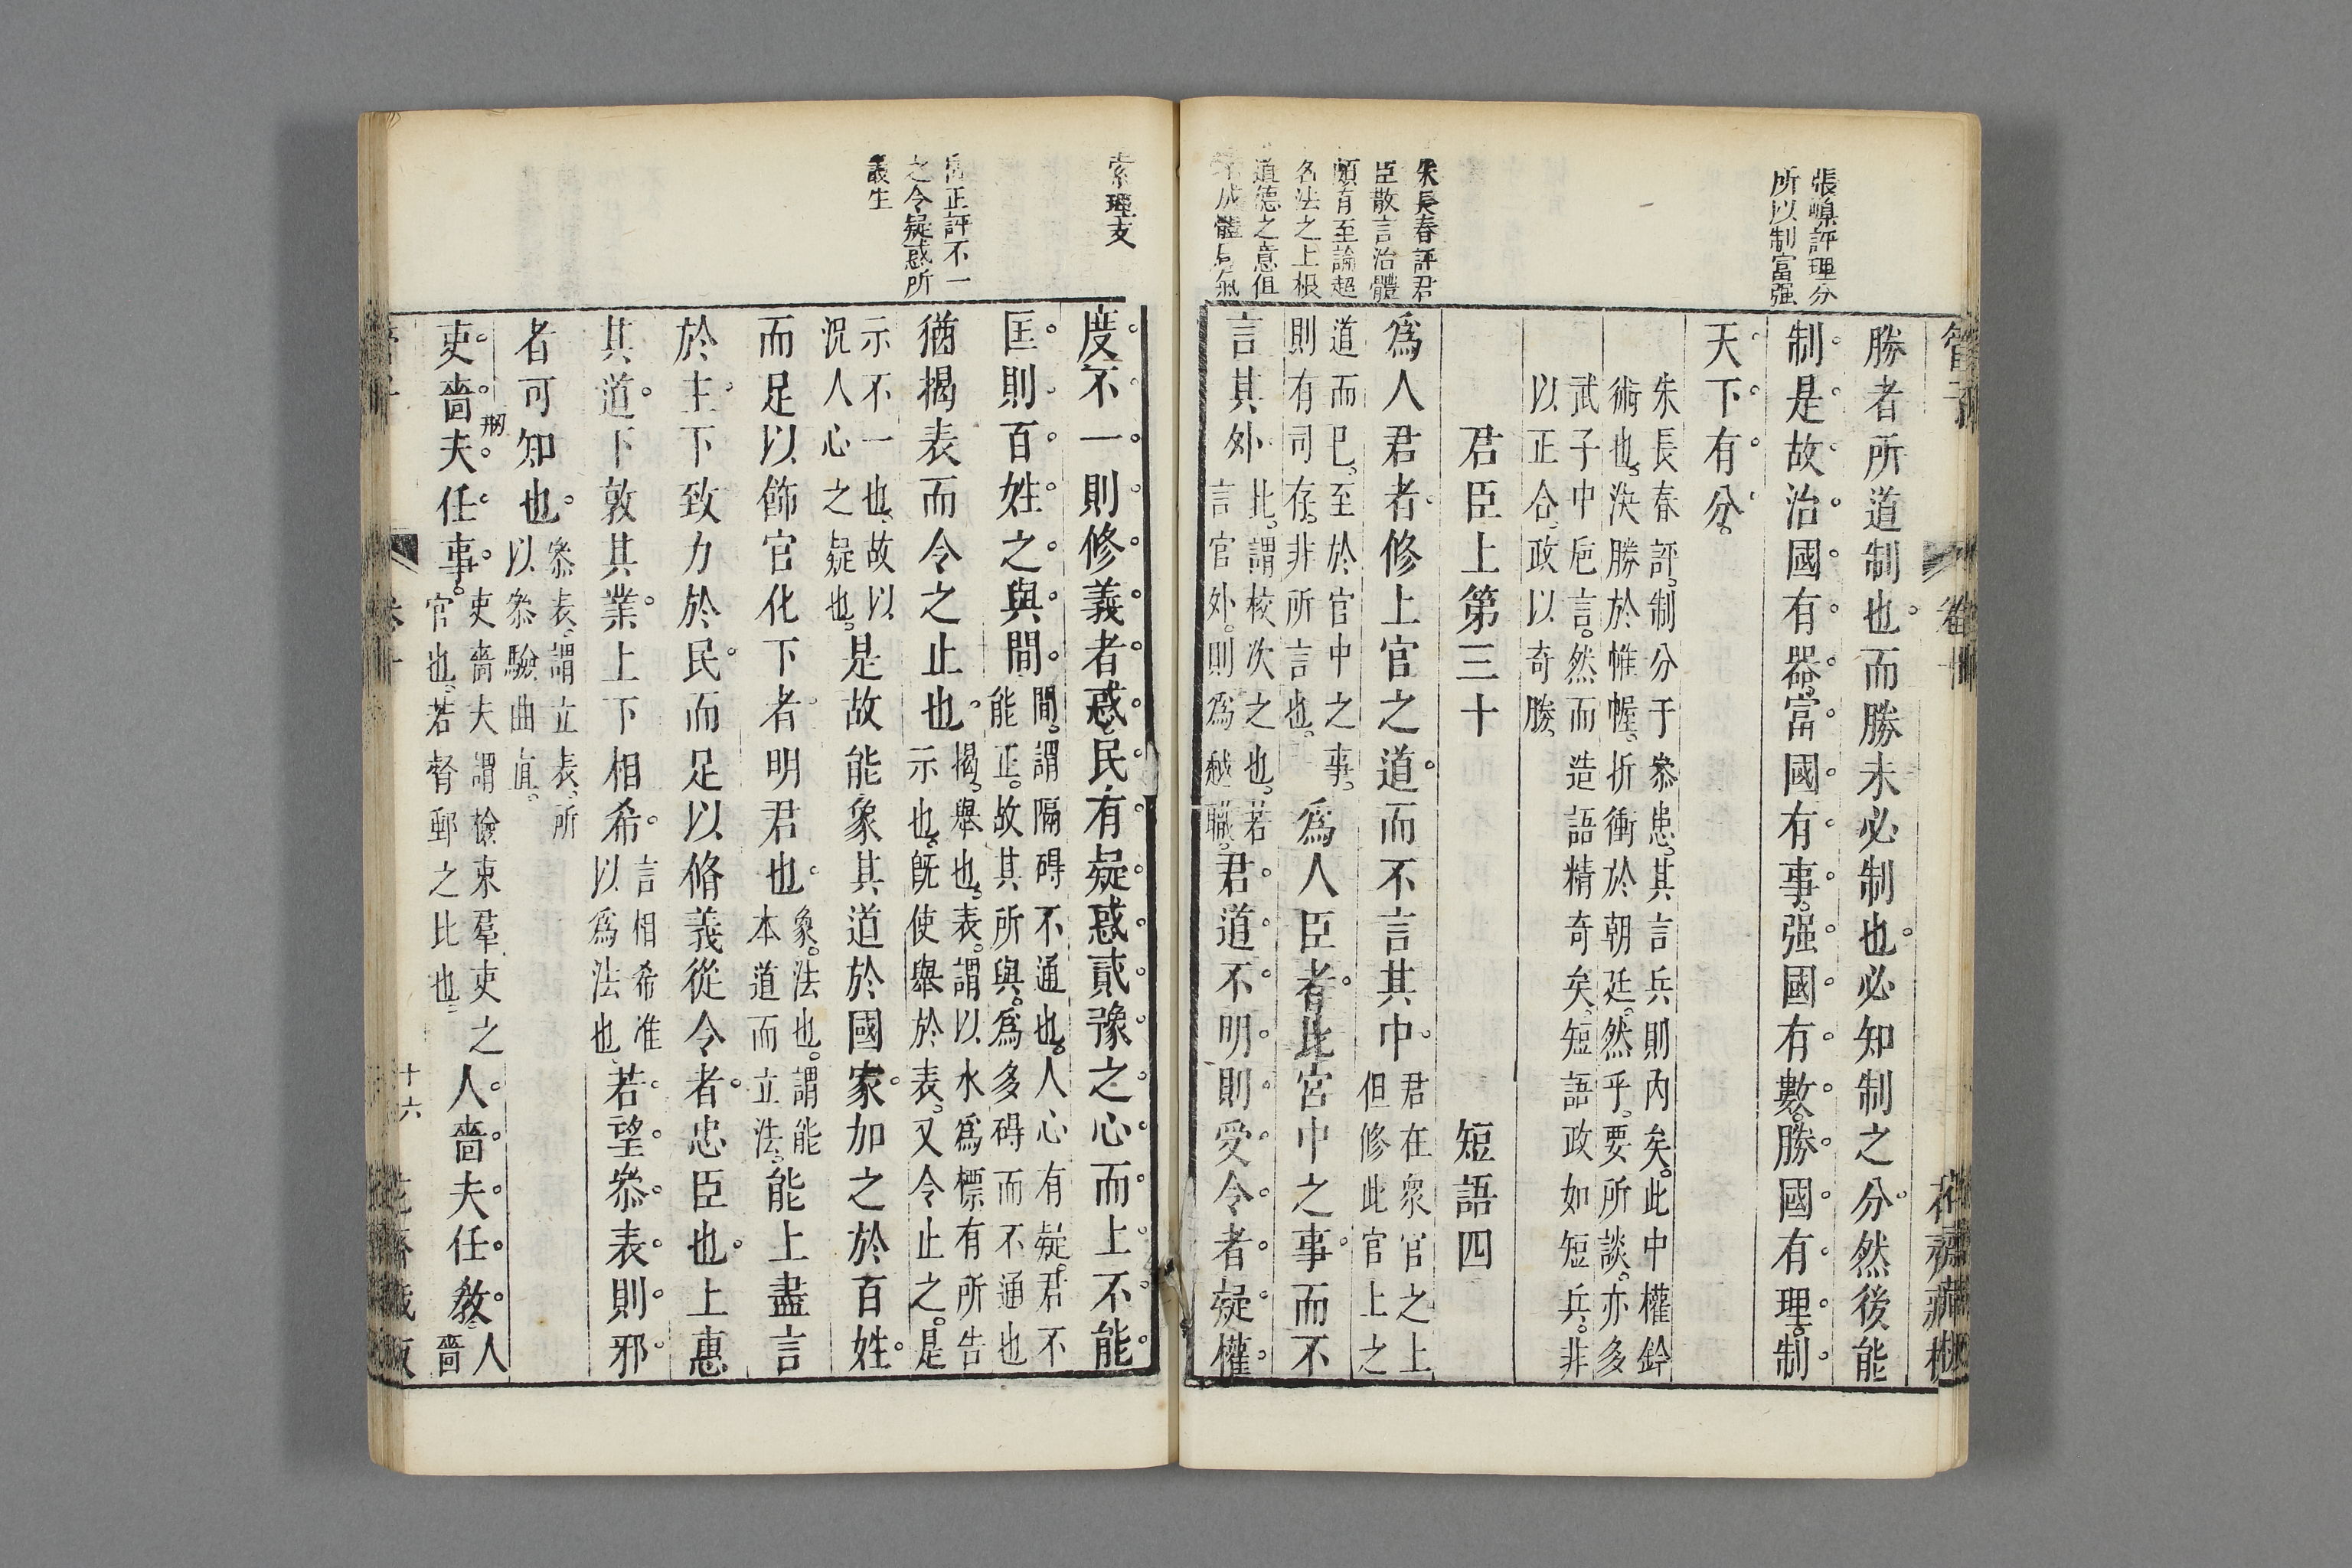 張嵲評理分
所以制富强
朱長春評君
臣散言治體
頗有至論超
名法之上根
道德之意但
成體
管子
勝者所道制也而勝未必制也必知制之分然後能
制是故治國有器富國有事强國有數勝國有理制
天下有分
朱長春評制分于叅患其言兵則內矣此中權鈐
術也決勝於帷幄折衝於朝廷然乎要所談亦多
武子中巵言然而造語精奇矣短語政如短兵非
以正合政以奇勝
君臣上第三十 短語四
爲人君者修上官之道而不言其中君在衆官之上但修此官上之
道而巳至於官中之事則有司存非所言也爲人臣者比官中之事而不
言其外此謂校次之也若言官外則爲越職君道不明則受令者疑權
索理支
正評不一
之令疑惑所
叢生
度不一則修義者惑民有疑惑貳豫之心而上不能
匡則百姓之與間間謂隔碍不通也人心有疑君不能正故其所與爲多碍而不通也
猶揭表而令之止也揭舉也表謂以水爲標有所告示也旣使舉於表又令止之是
示不一也故以況人心之疑也是故能象其道於國家加之於百姓
而足以飾官化下者明君也象法也謂能本道而立法能上盡言
於主下致力於民而足以脩義從令者忠臣也上惠
其道下敦其業上下相希言相希准以爲法也若望叅表則邪
者可知也叅表謂立表所以叅驗曲直
吏嗇夫任事吏嗇夫謂檢束羣吏之官也若督郵之比也人嗇夫任敎人嗇
十六